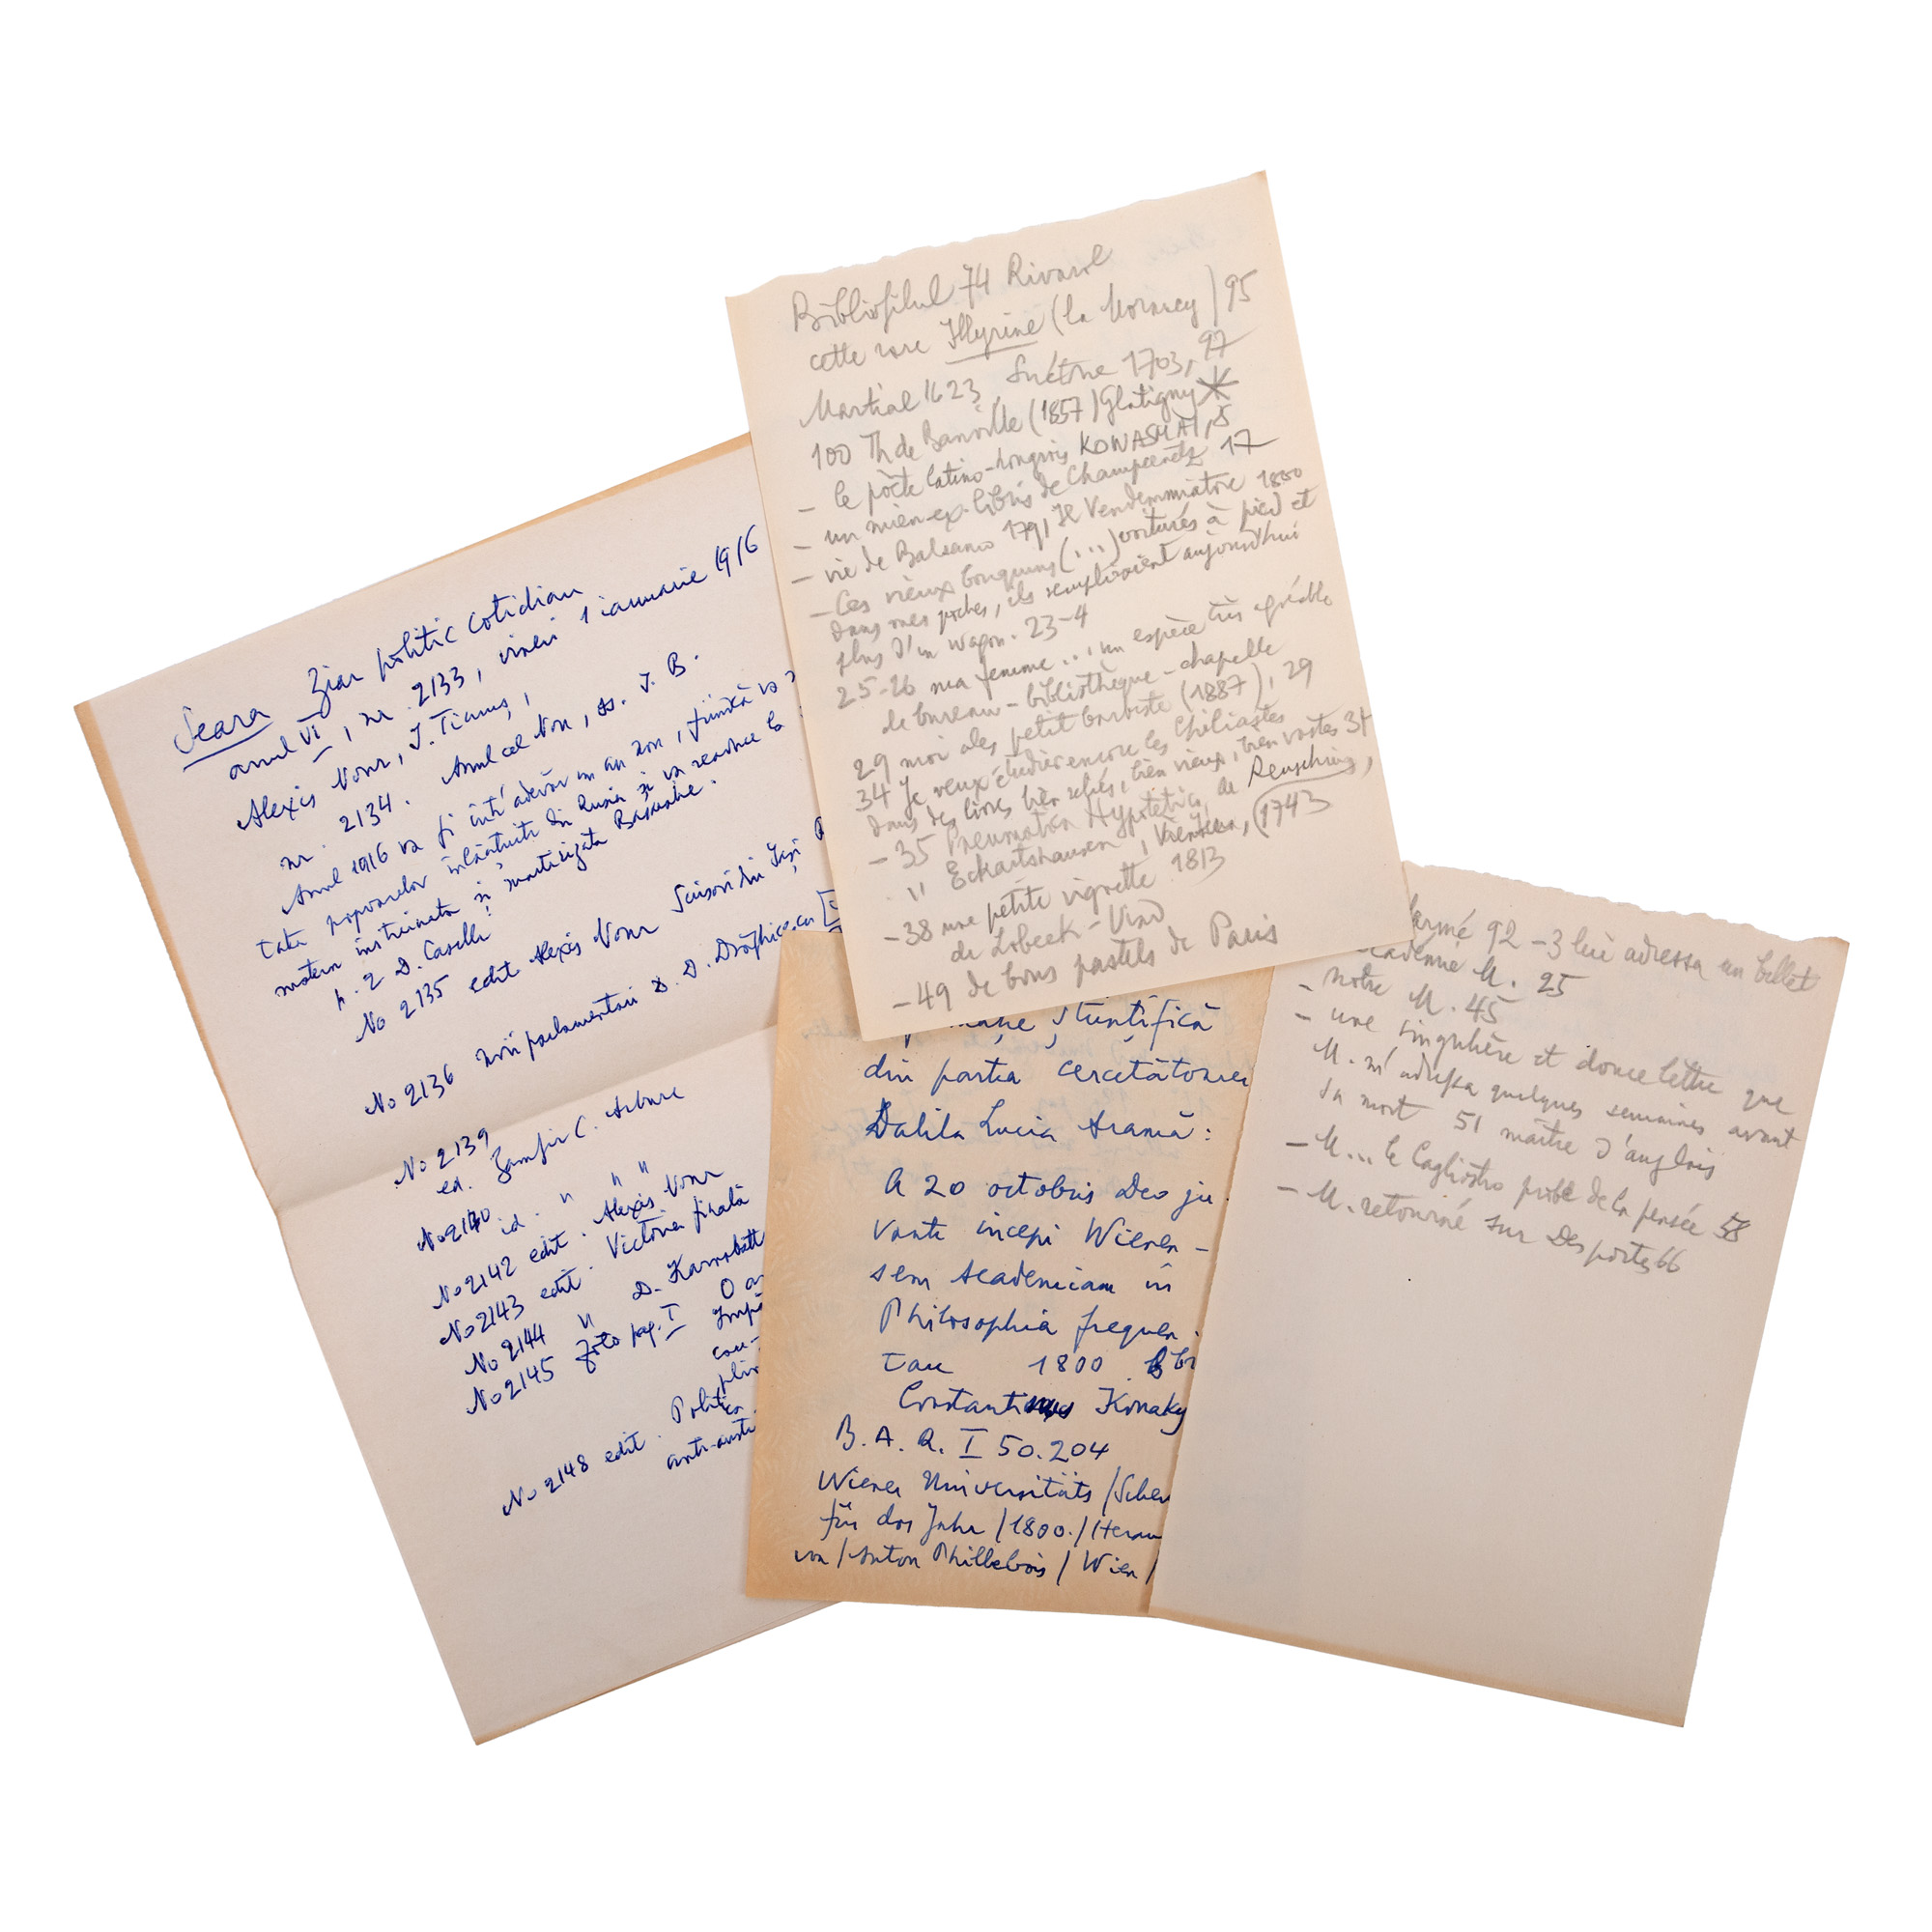 Seara Ziar politic cotidian
anul VI, nr. 2133, vineri 1 ianuarie 1916
Alexis Nour, I. Tianus,
nr. 2134. Anul cel Nou, ss. I. B.
Anul 1916 va fi într'adevăr un an nou, fiindcă va
tuturor popoarelor din Rusia și va readuce la
instreinata și martirizata Basarabie.
p. 2 D. Caselli
No 2135 edit Alexis Nour Iași
No 2136 parlamentari D. D. Drăghicescu
No 2139
ed. Zamfir C. Arbure
No 2140 id. " " "
No 2142 edit. Alexis Nour
No 2143 edit. Victoria finală
No 2144 " D. Karnabatt
No 2145 foto pag. I O
Împă
cau-
No 2148 edit. Politica
anti-austr
Bibliofilul 74 Rivarol
cette rare Illyrine (la Mornsey) 95
Martial 1623, Suétone 1703, 97
100 Th de Banville (1857) Glatigny
- le poète latino-hongrois KOWASMAI, 5
- un mien ex-libris de Champcenetz 17
- vie de Balsamo 1791 Il Vendemmiatore 1800
- Ces vieux bouquins (...) voiturés à pied et
dans mes poches, ils rempliraient aujourd'hui
plus d'un wagon. 23-4
25-26 ma femme... un espèce très agréable
de bureau-bibliothèque-chapelle
29 moi petit barbiste (1887), 29
34 Je veux étudier encore les Chiliastes
dans des livres bien reliés, bien vieux, bien vastes 34
- 35 Pneumatica Hypotetica de Reusching,
" Eckartshausen, (1743)
- 38 une petite vignette 1813
de Lobeck-Vind
- 49 de bons pastels de Paris
științifică
din partea cercetătoarei
Dalila Lucia Aramă:
A 20 octobris Deo ju
vante incepi Wienen-
sem Academiam in
Philosophia frequen
tare 1800 8br
Constantinus Konaky
B. A. R. I 50.204
Wiener Universitäts /Schem
für das Jahr /1800./ Heraus
von / Anton Phillebois / Wien /
larmé 92-3 lui adressa un billet
cadémie M. 25
- notre M. 45
- une singulière et douce lettre que
M. m'adressa quelques semaines avant
sa mort 51 maître d'anglais
- M... le Cagliostro probe de la pensée 58
- M. retourné sur Desportes 66